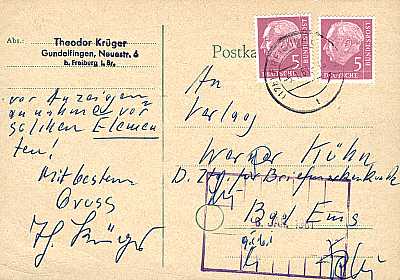 Abs.: Theodor Krüger
Gundelfingen, Neuestr. 6
b. Freiburg i. Br.
vor Anzeigen
annahme vor
solchen Elemen
ten!
Mit bestem
Gruss
Th. Krüger
Postka
DEUTSCHE BUNDESPOST
5
DEUTSCHE BUNDESPOST
5
An
Verlag
Werner Kühn
D. Ztg. für Briefmarkenkunde
Bad Ems